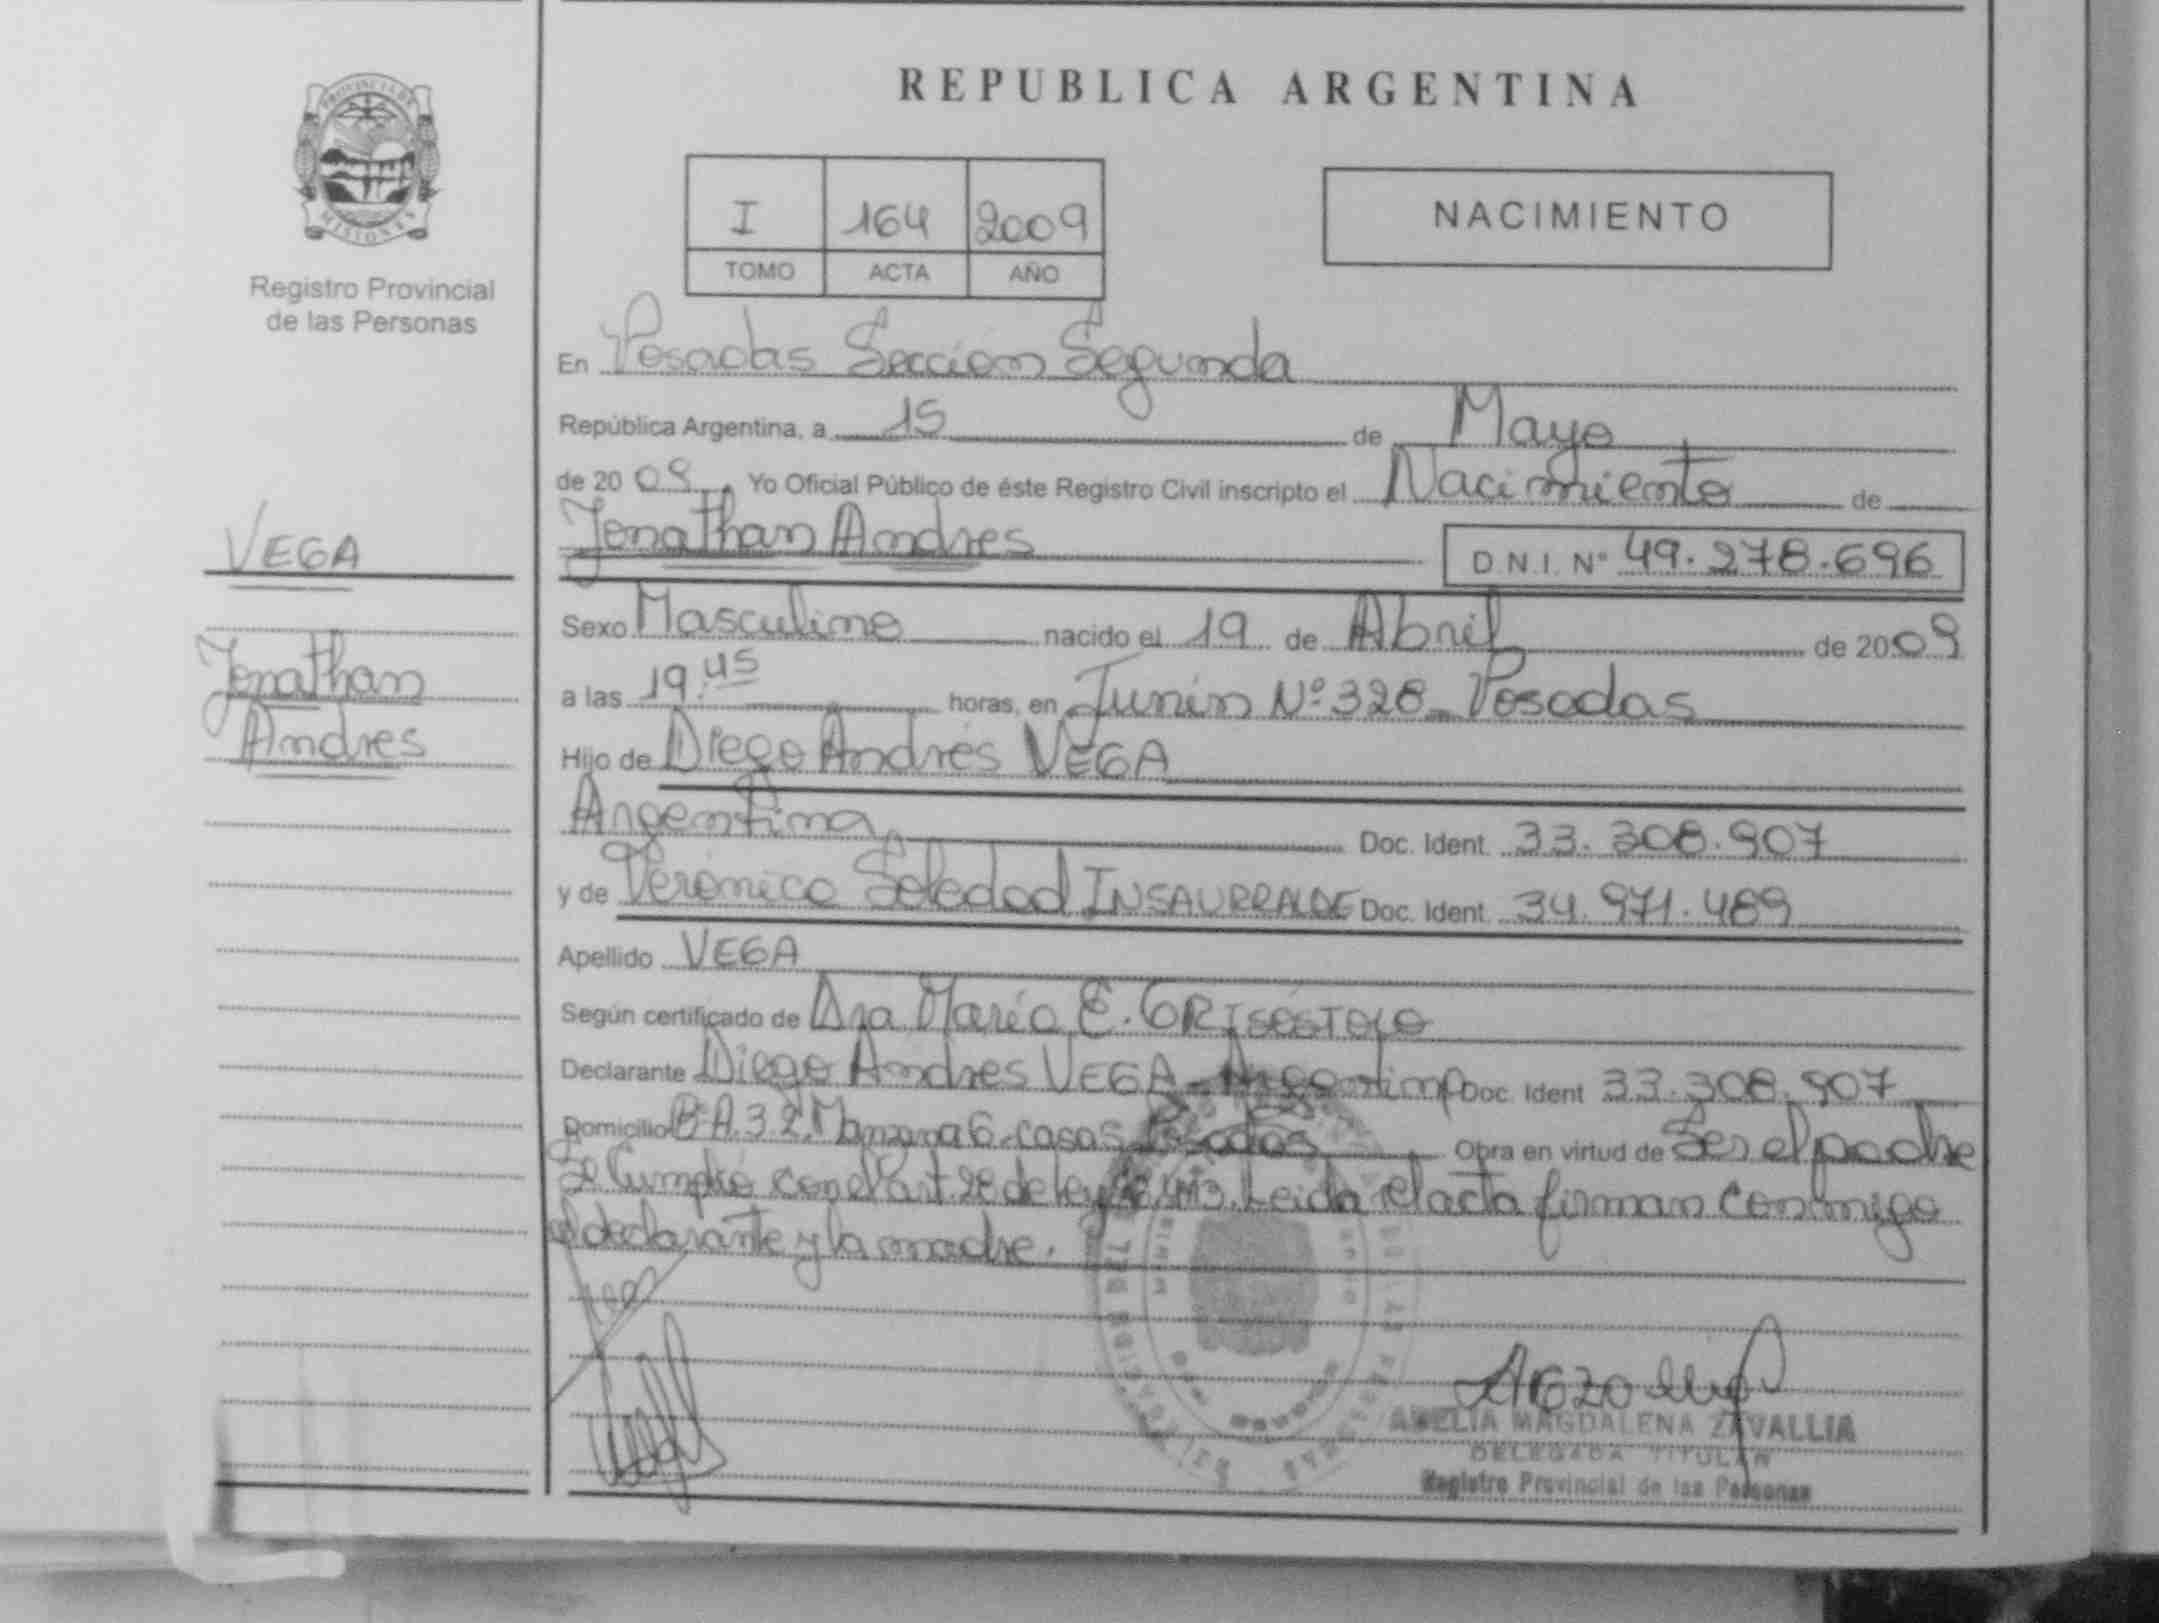 PROVINCIA DE
MISIONES
Registro Provincial
de las Personas
VEGA
Jonathan
Andres
REPUBLICA ARGENTINA
I 164 2009
TOMO ACTA AÑO
NACIMIENTO
En Posadas Sección Segunda
República Argentina, a 15 de Mayo
de 2009, Yo Oficial Público de éste Registro Civil inscripto el Nacimiento de
Jonathan Andres D.N.I. Nº 49.278.696
Sexo Masculino nacido el 19 de Abril de 2009
a las 19:45 horas, en Junín Nº 328 Posadas
Hijo de Diego Andrés VEGA
Argentina Doc. Ident. 33.308.907
y de Verónica Soledad INSAURRALDE Doc. Ident. 34.971.489
Apellido VEGA
Según certificado de Dra María E.
Declarante Diego Andres VEGA - Argentino Doc. Ident 33.308.907
Domicilio Bº A.3.2. Manzana 6. casa 5 Posadas Obra en virtud de Ser el padre
Se Cumplió con el art. de ley Leida el acta firman conmigo
el declarante y la madre.
AMELIA MAGDALENA ZAVALLIA
DELEGADA TITULAR
Registro Provincial de las Personas